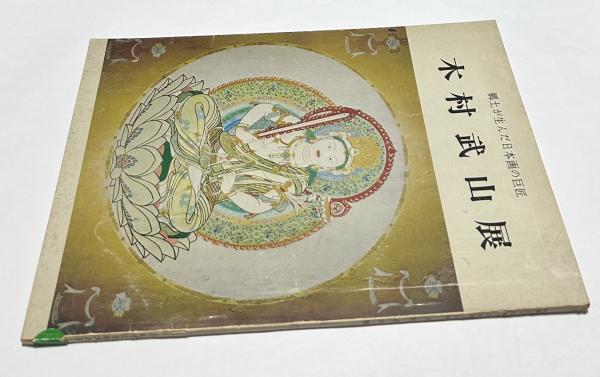 郷土が生んだ日本画の巨匠
木村武山展